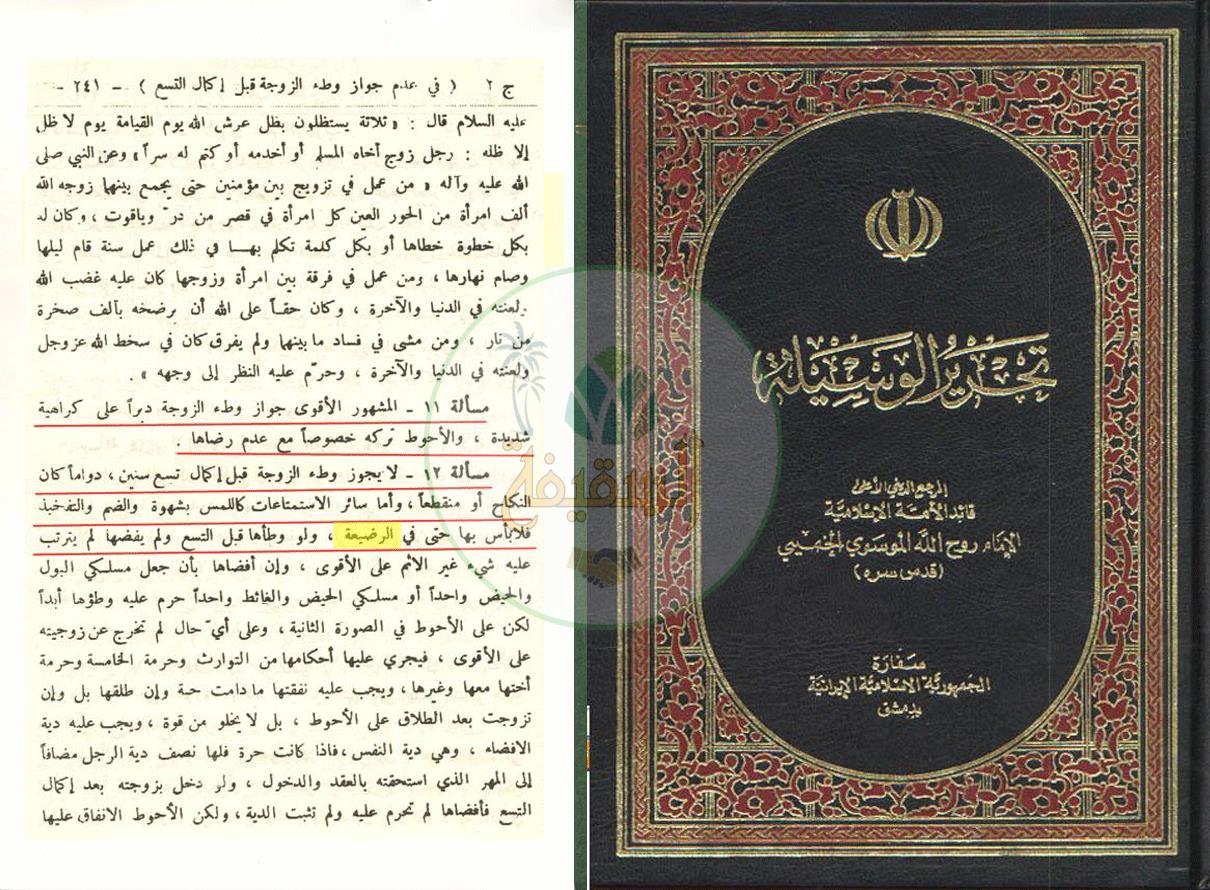 ج ٢ ( في عدم جواز وطء الزوجة قبل إكمال التسع ) ـ ٢٤١ ـ
عليه السلام قال : « ثلاثة يستظلون بظل عرش الله يوم القيامة يوم لا ظل
إلا ظله : رجل زوج أخاه المسلم أو أخدمه أو كتم له سراً » وعن النبي صلى
الله عليه وآله « من عمل في تزويج بين مؤمنين حتى يجمع بينهما زوجه الله
ألف امرأة من الحور العين كل امرأة في قصر من درّ وياقوت ، وكان له
بكل خطوة خطاها أو بكل كلمة تكلم بهـا في ذلك عمل سنة قام ليلها
وصام نهارها ، ومن عمل في فرقة بين امرأة وزوجها كان عليه غضب الله
ولعنته في الدنيا والآخرة ، وكان حقاً على الله أن يرضخه بألف صخرة
من نار ، ومن مشى في فساد ما بينهما ولم يفرق كان في سخط الله عز وجل
ولعنته في الدنيا والآخرة ، وحرّم عليه النظر إلى وجهه » .
مسألة ١١ ـ المشهور الأقوى جواز وطء الزوجة دبراً على كراهية
شديدة ، والأحوط تركه خصوصاً مع عدم رضاها .
مسألة ١٢ ـ لا يجوز وطء الزوجة قبل إكمال تسع سنين ، دواماً كان
النكاح أو منقطعاً ، وأما سائر الاستمتاعات كاللمس بشهوة والضم والتفخيذ
فلا بأس بها حتى في الرضيعة ، ولو وطأها قبل التسع ولم يفضها لم يترتب
عليه شيء غير الاثم على الأقوى ، وإن أفضاها بأن جعل مسلكي البول
والحيض واحداً أو مسلكي الحيض والغائط واحداً حرم عليه وطؤها أبداً
لكن على الأحوط في الصورة الثانية ، وعلى أيّ حال لم تخرج عن زوجيته
على الأقوى ، فيجري عليها أحكامها من التوارث وحرمة الخامسة وحرمة
أختها معها وغيرها ، ويجب عليه نفقتها ما دامت حية وإن طلقها بل وإن
تزوجت بعد الطلاق على الأحوط ، بل لا يخلو من قوة ، ويجب عليه دية
الافضاء ، وهي دية النفس ، فاذا كانت حرة فلها نصف دية الرجل مضافاً
إلى المهر الذي استحقته بالعقد والدخول ، ولو دخل بزوجته بعد إكمال
التسع فأفضاها لم تحرم عليه ولم تثبت الدية ، ولكن الأحوط الانفاق عليها
السقيفة
تحرير الوسيلة
المرجع الديني الأعلى
قائد الأمة الإسلامية
الإمام روح الله الموسوي الخميني
(قدس سره)
سفارة
الجمهورية الإسلامية الإيرانية
بدمشق